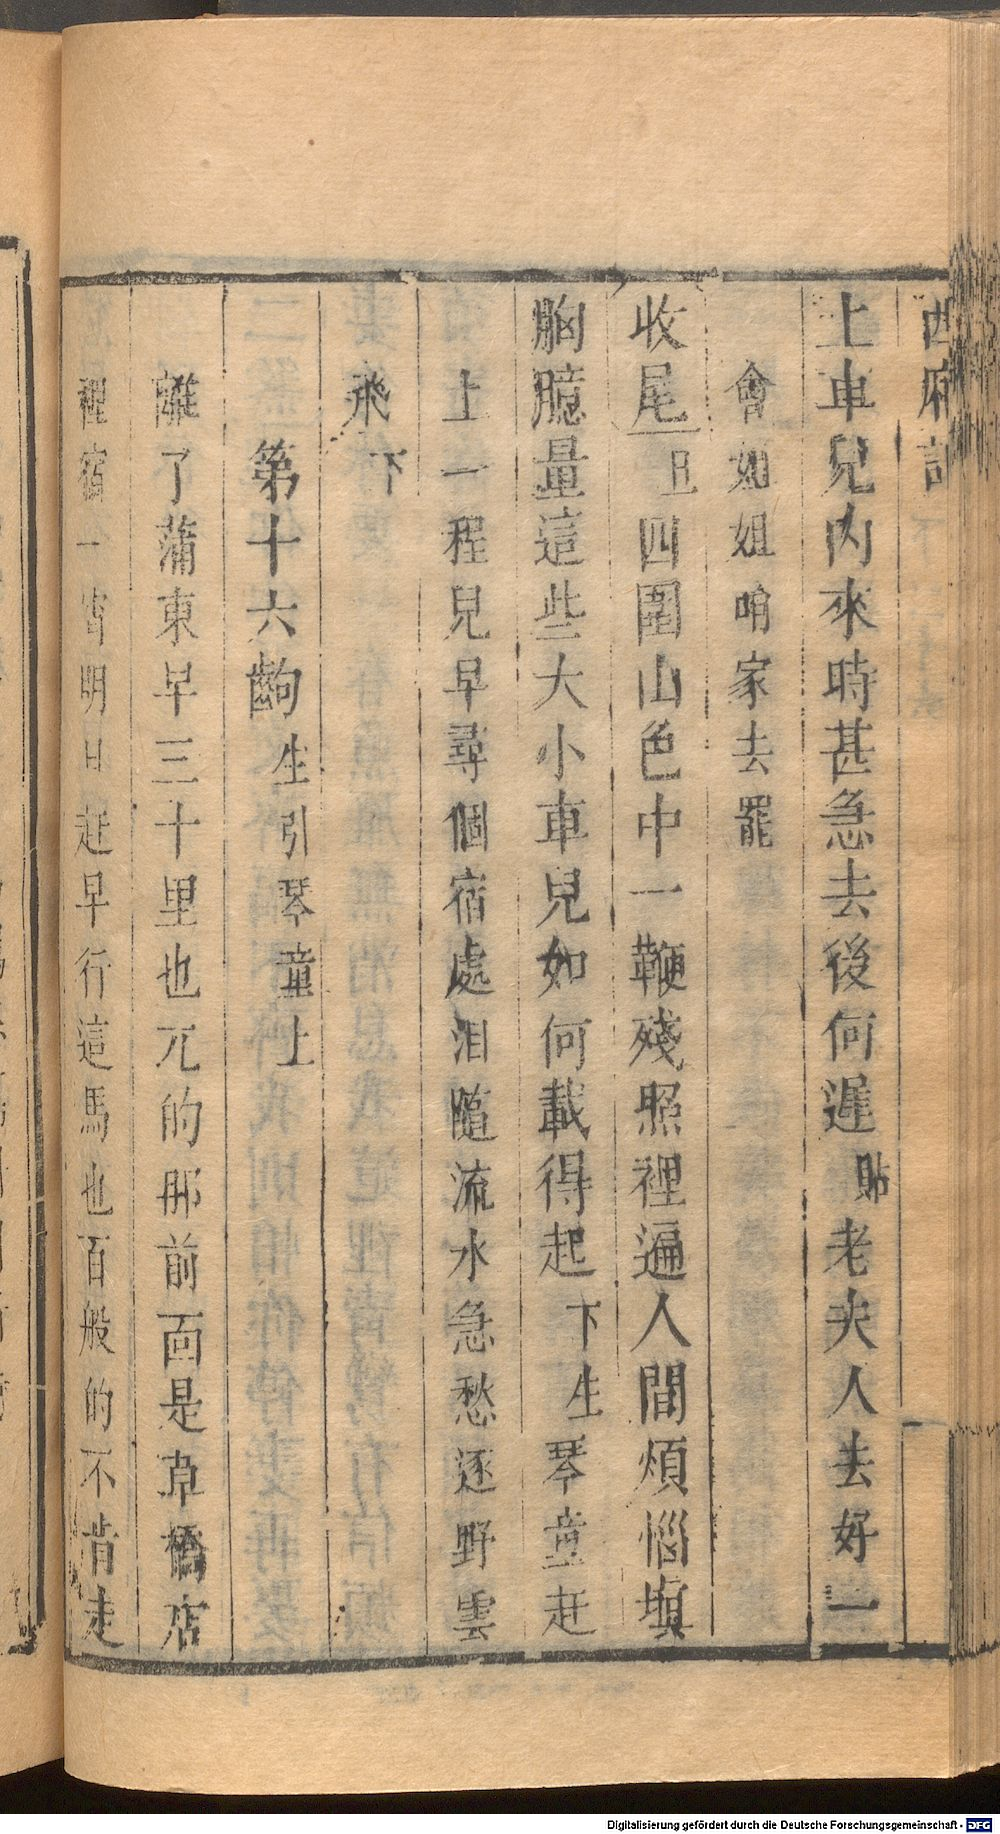 西廂記
上車兒內來時甚急去後何遲貼老夫人去好一
會如姐咱家去罷
收尾旦四圍山色中一鞭殘照裡遍人間煩惱塡
胸臆量這些大小車兒如何載得起下生琴童赶
上一程兒早尋個宿處泪隨流水急愁逐野雲
飛下
第十六齣生引琴童上
離了蒲東早三十里也兀的那前面是草橋店
裡宿一宵明日赶早行這馬也百般的不肯走
Digitalisierung gefördert durch die Deutsche Forschungsgemeinschaft - DFG